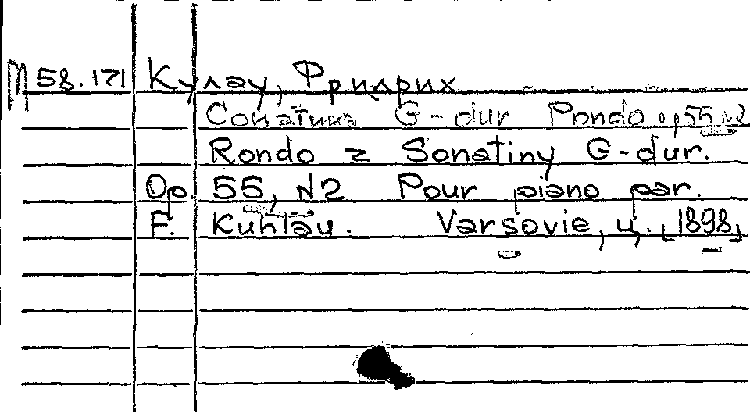 М 58.171 Кулау, Фридрих
Сонатина G-dur Рondo op 55 №2
Rondo z Sonatiny G-dur.
Op. 55, №2 Pour piano par.
F. Kuhlau. Varsovie, ц. [1898]